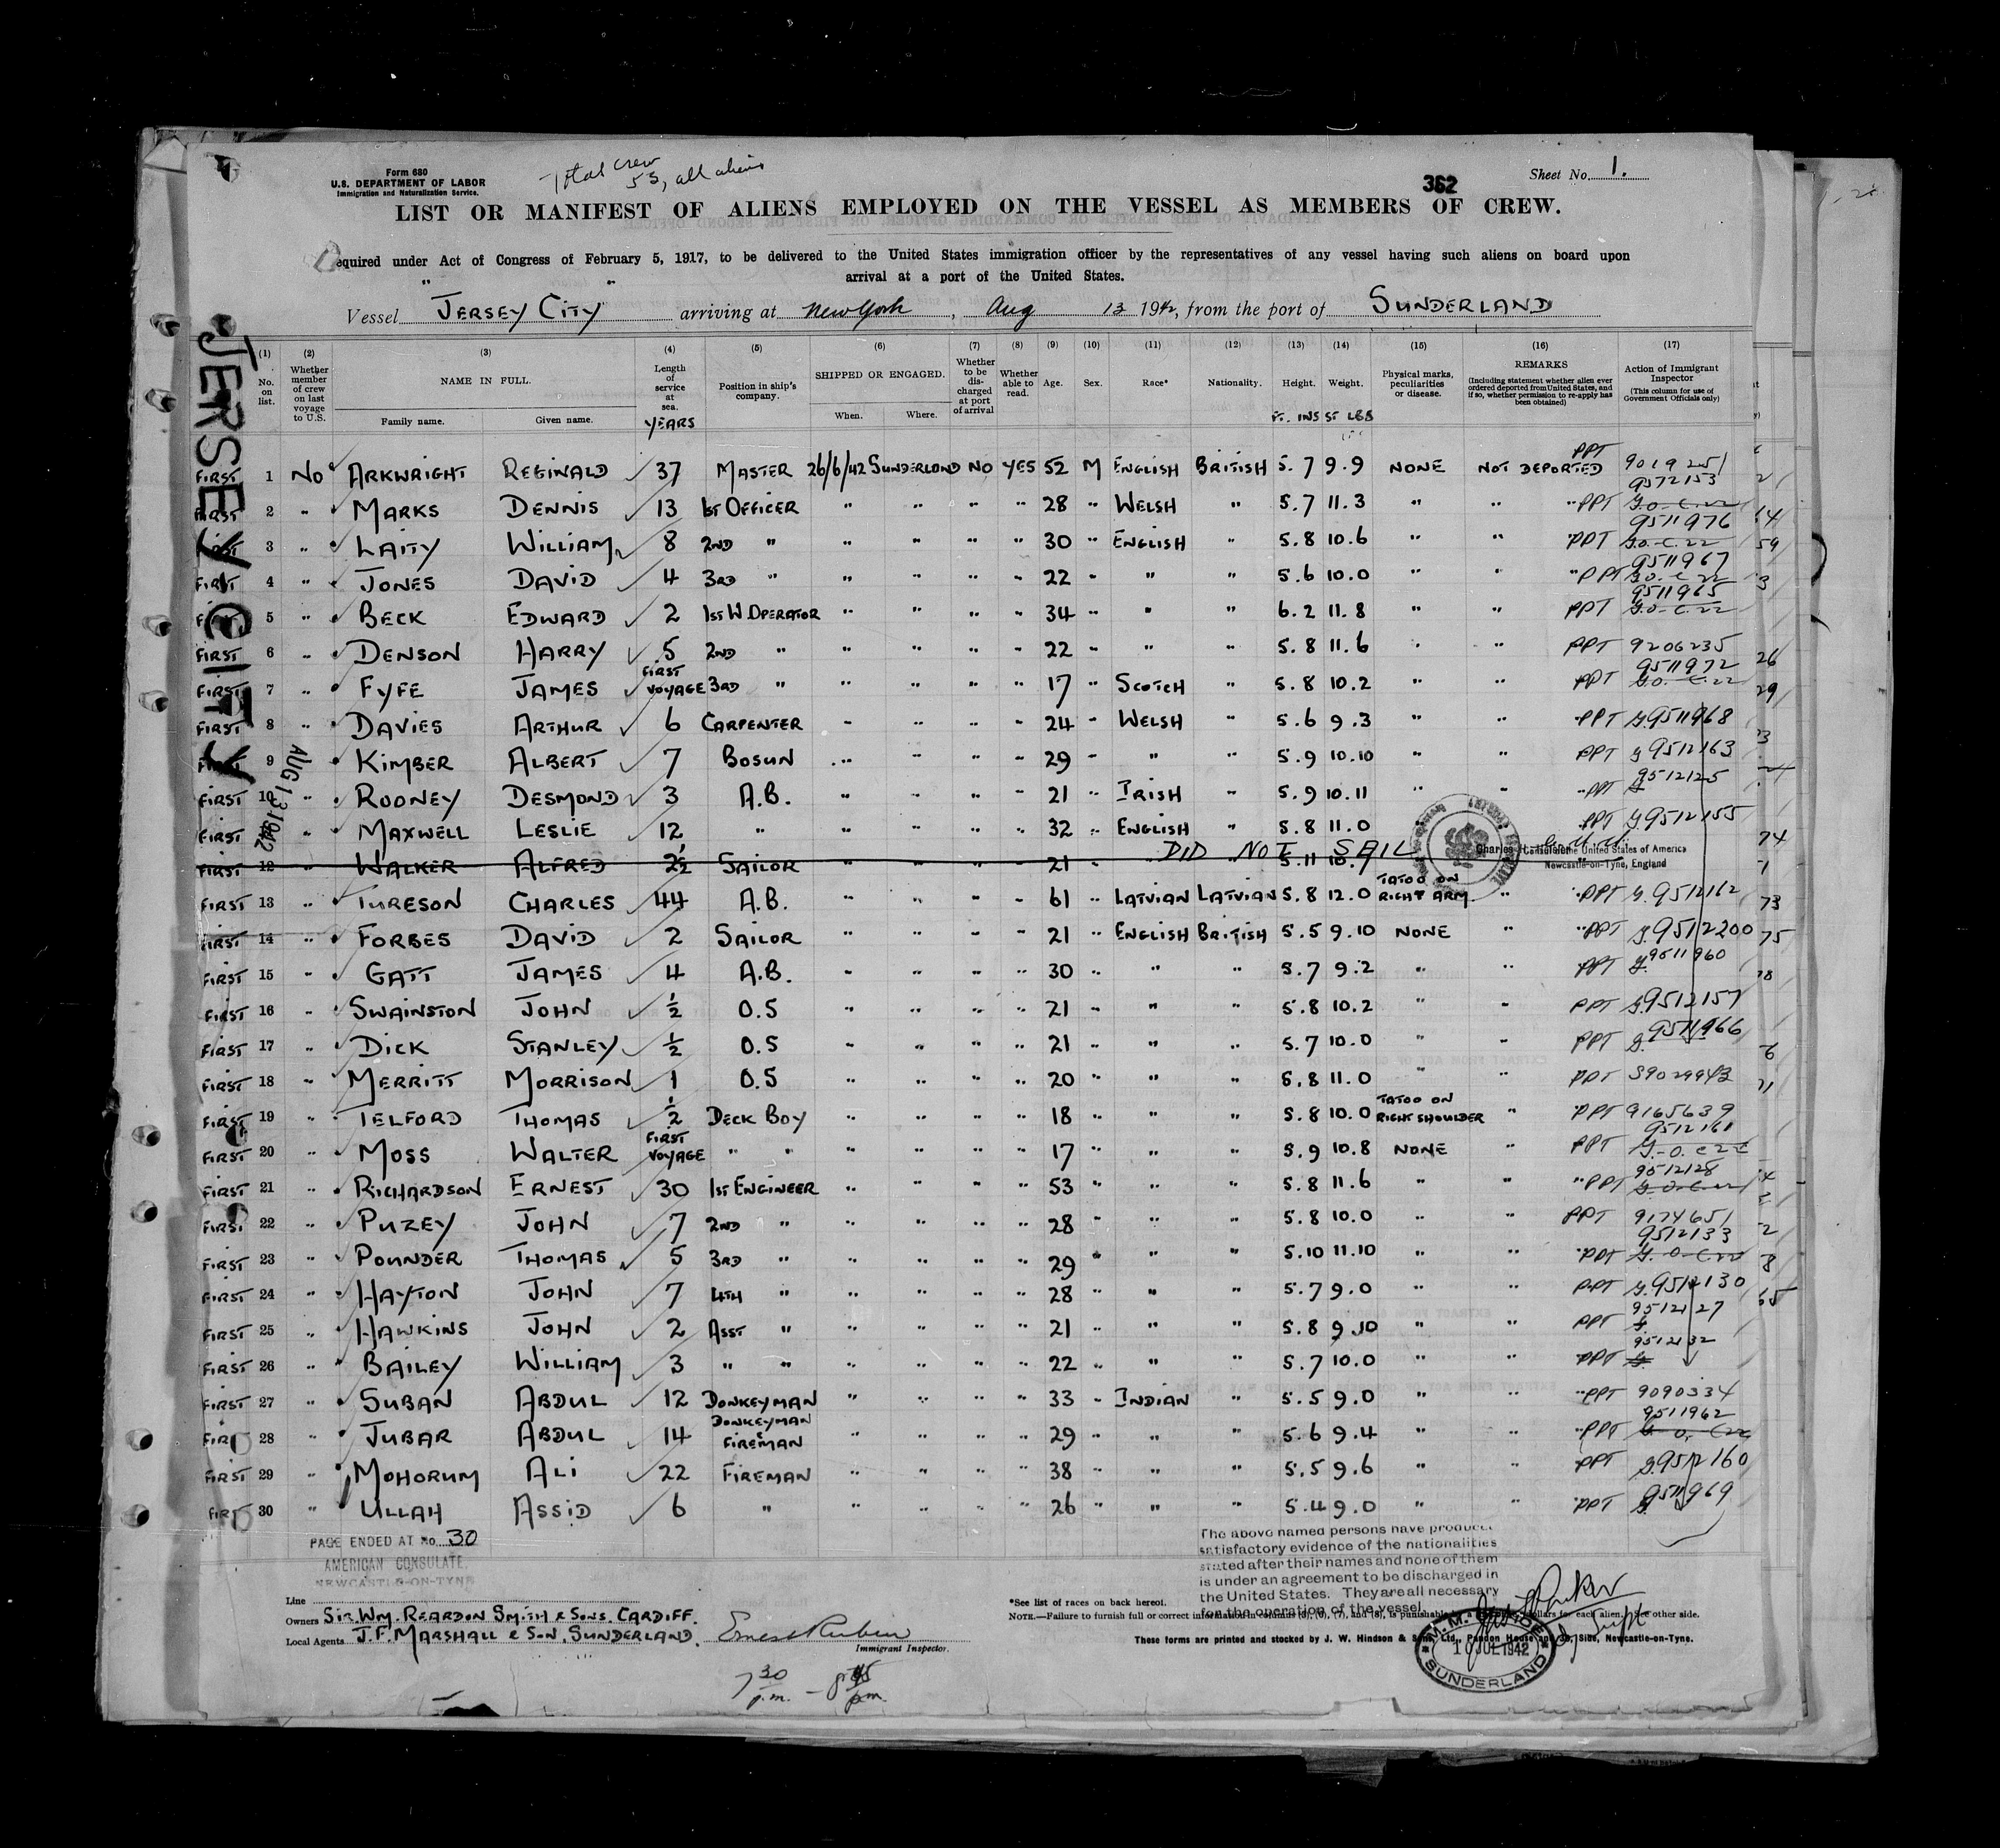 Form 680
U.S. DEPARTMENT OF LABOR
Immigration and Naturalization Service.
Total crew
53, all aliens
362
Sheet No. 1.
LIST OR MANIFEST OF ALIENS EMPLOYED ON THE VESSEL AS MEMBERS OF CREW.
equired under Act of Congress of February 5, 1917, to be delivered to the United States immigration officer by the representatives of any vessel having such aliens on board upon
arrival at a port of the United States.
Vessel "JERSEY CITY" arriving at New York, Aug 13 1942, from the port of SUNDERLAND
JERSEY CITY
AUG 13 1942
(1) No. on list.
(2) Whether member of crew on last voyage to U.S.
(3) NAME IN FULL. Family name. Given name.
(4) Length of service at sea. YEARS
(5) Position in ship's company.
(6) SHIPPED OR ENGAGED. When. Where.
(7) Whether to be discharged at port of arrival
(8) Whether able to read.
(9) Age.
(10) Sex.
(11) Race*
(12) Nationality.
(13) Height. FT. INS
(14) Weight. ST LBS
(15) Physical marks, peculiarities or disease.
(16) REMARKS (Including statement whether alien ever ordered deported from United States, and if so, whether permission to re-apply has been obtained)
(17) Action of Immigrant Inspector (This column for use of Government Officials only)
FIRST 1 No ARKWRIGHT REGINALD 37 MASTER 26/6/42 SUNDERLAND NO YES 52 M ENGLISH BRITISH 5.7 9.9 NONE NOT DEPORTED PPT 9019251
FIRST 2 " MARKS DENNIS 13 1ST OFFICER " " " " 28 " WELSH " 5.7 11.3 " " " PPT 9572153
FIRST 3 " LAITY WILLIAM 8 2ND " " " " " 30 " ENGLISH " 5.8 10.6 " " " PPT 9511976
FIRST 4 " JONES DAVID 4 3RD " " " " " 22 " " " 5.6 10.0 " " " PPT 9511967
FIRST 5 " BECK EDWARD 2 1ST W. OPERATOR " " " " 34 " " " 6.2 11.8 " " PPT 9511965
FIRST 6 " DENSON HARRY 5 2ND " " " " " 22 " " " 5.8 11.6 " " PPT 9206235
FIRST 7 " FYFE JAMES FIRST VOYAGE 3RD " " " " " 17 " SCOTCH " 5.8 10.2 " " PPT 9511972
FIRST 8 " DAVIES ARTHUR 6 CARPENTER " " " " 24 " WELSH " 5.6 9.3 " " PPT 9511968
FIRST 9 " KIMBER ALBERT 7 BOSUN " " " " 29 " " " 5.9 10.10 " " PPT 9512163
FIRST 10 " ROONEY DESMOND 3 A.B. " " " " 21 " IRISH " 5.9 10.11 " " PPT 9512125
FIRST " MAXWELL LESLIE 12 " " " " " 32 " ENGLISH " 5.8 11.0 PPT 9512155
FIRST 12 WALKER ALFRED 2½ SAILOR " " " " 21 DID NOT SAIL 5.11
Consul of the United States of America
Newcastle-on-Tyne, England
FIRST 13 " TURESON CHARLES 44 A.B. " " " " 61 " LATVIAN LATVIAN 5.8 12.0 TATOO ON RIGHT ARM " " PPT 9512162
FIRST 14 " FORBES DAVID 2 SAILOR " " " " 21 " ENGLISH BRITISH 5.5 9.10 NONE " " PPT 9512200
FIRST 15 " GATT JAMES 4 A.B. " " " " 30 " " " 5.7 9.2 " " PPT 9511960
FIRST 16 " SWAINSTON JOHN ½ O.S " " " " 21 " " " 5.8 10.2 " " PPT 9512157
FIRST 17 " DICK STANLEY ½ O.S " " " " 21 " " " 5.7 10.0 " " PPT 9511966
FIRST 18 " MERRITT MORRISON 1 O.S " " " " 20 " " " 5.8 11.0 " " PPT 59029943
FIRST 19 " TELFORD THOMAS ½ DECK BOY " " " " 18 " " " 5.8 10.0 TATOO ON RIGHT SHOULDER " PPT 9165639
FIRST 20 " MOSS WALTER FIRST VOYAGE " " " " " " 17 " " " 5.9 10.8 NONE " PPT 9512161
FIRST 21 " RICHARDSON ERNEST 30 1ST ENGINEER " " " " 53 " " " 5.8 11.6 " " " PPT 9512128
FIRST 22 " PUZEY JOHN 7 2ND " " " " " 28 " " " 5.8 10.0 " " PPT 9174651
FIRST 23 " POUNDER THOMAS 5 3RD " " " " " 29 " " " 5.10 11.10 " " PPT 9512133
FIRST 24 " HAYTON JOHN 7 4TH " " " " " 28 " " " 5.7 9.0 " " PPT 9512130
FIRST 25 " HAWKINS JOHN 2 ASST " " " " " 21 " " " 5.8 9.10 " " PPT 9512127
FIRST 26 " BAILEY WILLIAM 3 " " " " " " 22 " " " 5.7 10.0 " " PPT 9512132
FIRST 27 " SUBAN ABDUL 12 DONKEYMAN " " " " 33 " INDIAN " 5.5 9.0 " " PPT 9090334
FIRST 28 " JUBAR ABDUL 14 DONKEYMAN & FIREMAN " " " " 29 " " " 5.6 9.4 " " PPT 9511962
FIRST 29 " MOHORUM ALI 22 FIREMAN " " " " 38 " " " 5.5 9.6 " " PPT 9512160
FIRST 30 " ULLAH ASSID 6 " " " " " 26 " " " 5.4 9.0 " " PPT 9511969
PAGE ENDED AT No. 30
AMERICAN CONSULATE
NEWCASTLE-ON-TYNE
The above named persons have produced
satisfactory evidence of the nationalities
stated after their names and none of them
is under an agreement to be discharged in
the United States. They are all necessary
for the operation of the vessel.
Line
Owners SIR. WM. REARDON SMITH & SONS. CARDIFF.
Local Agents J. F. MARSHALL & SON, SUNDERLAND.
Ernest Rubin
Immigrant Inspector.
7 30 p.m. - 8 45 p.m.
*See list of races on back hereof.
NOTE.—Failure to furnish full or correct information in columns (3), (6), (7), and (8), is punishable dollars for each alien. See other side.
These forms are printed and stocked by J. W. Hindson & Sons, Ltd., Pandon House and 30, Side, Newcastle-on-Tyne.
M.M. OFFICE
10 JUL 1942
SUNDERLAND